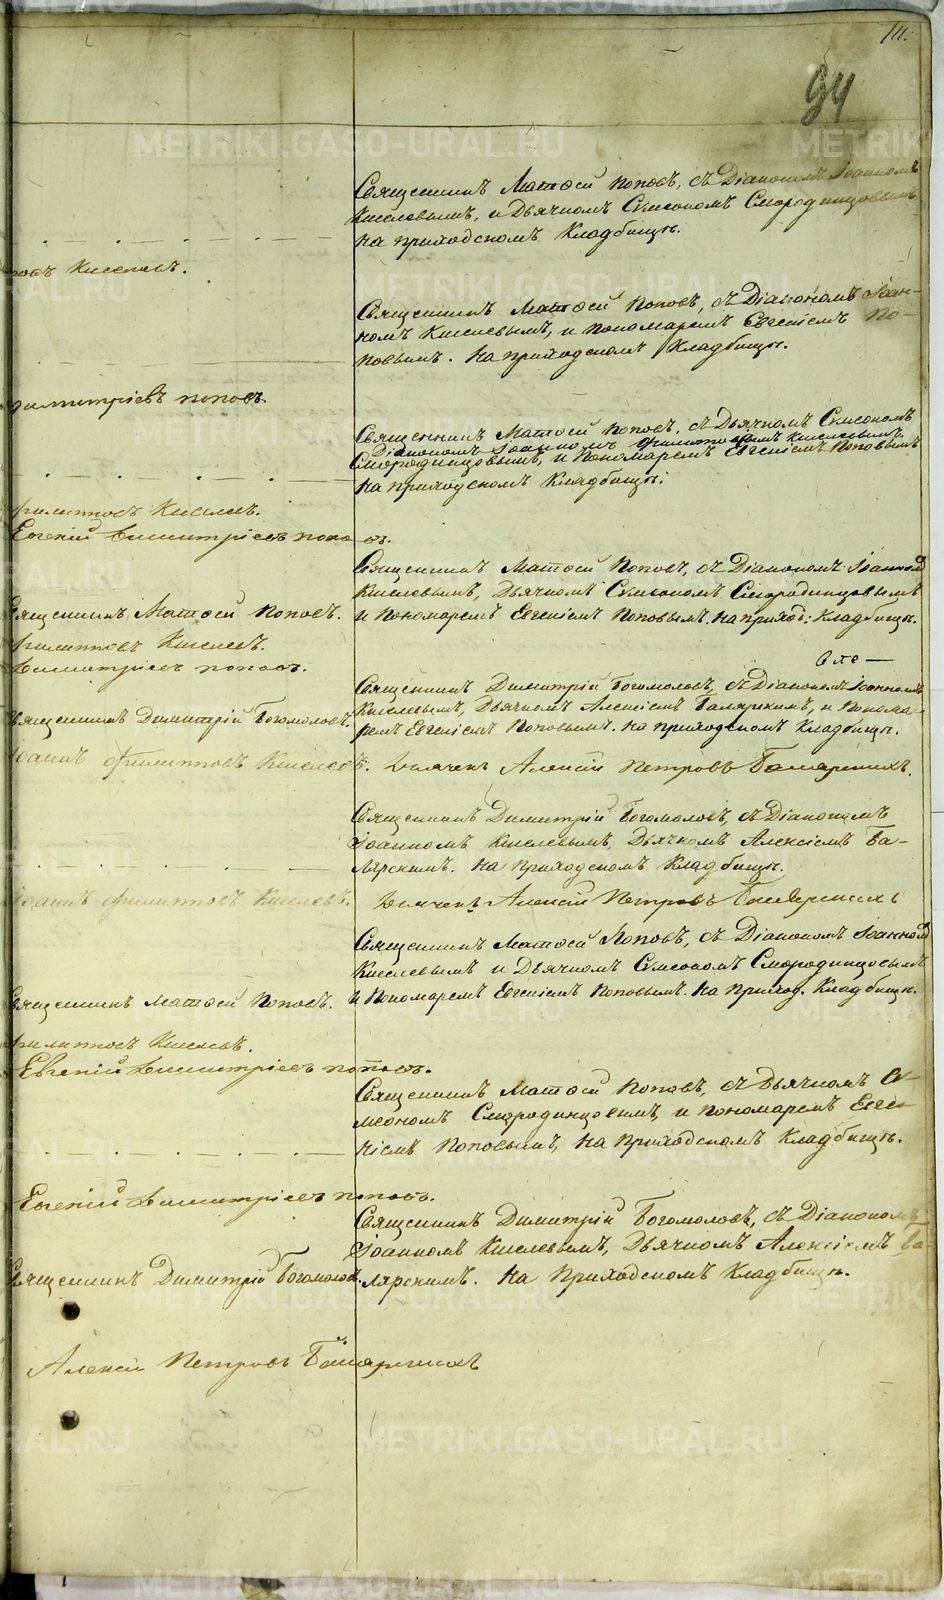 94
Священникъ Матѳей Поповъ, съ Діакономъ Іоанномъ
Киселевымъ, и Дьячкомъ Симеономъ Смородинцовымъ
на приходскомъ Кладбищѣ.
Киселевъ.
Священникъ Матѳей Поповъ, съ Діакономъ Іоан-
номъ Киселевымъ, и пономаремъ Евгеніемъ По-
повымъ. На приходскомъ Кладбищѣ.
Димитріевъ Поповъ.
Священникъ Матѳей Поповъ, съ Дьячкомъ Симеономъ
Діакономъ Іоанномъ Филиповымъ Киселевымъ
Смородинцовымъ, и Пономаремъ Евгеніемъ Поповымъ
на приходскомъ Кладбищѣ.
Филиповъ Киселевъ.
Евгеній Димитріевъ Поповъ.
Священникъ Матѳей Поповъ, съ Діакономъ Іоанномъ
Киселевымъ, Дьячкомъ Симеономъ Смородинцовымъ
Священникъ Матѳей Поповъ.
и Пономаремъ Евгеніемъ Поповымъ. на приход: Кладбищѣ.
Филиповъ Киселевъ.
Димитріевъ Поповъ.
Священникъ Димитрій Богомоловъ, съ Діакономъ Іоанномъ
Киселевымъ, Дьячкомъ Алексіемъ Балярскимъ, и Понома-
Священникъ Димитрій Богомоловъ.
ремъ Евгеніемъ Поповымъ. на приходскомъ Кладбищѣ.
Іоаннъ Филиповъ Киселевъ. Дьячекъ Алексій Петровъ
Священникъ Димитрій Богомоловъ, съ Діакономъ
Іоанномъ Киселевымъ, Дьячкомъ Алексіемъ Ба-
лярскимъ. На приходскомъ Кладбищѣ.
Іоаннъ Филиповъ Киселевъ. Дьячекъ Алексій Петровъ
Священникъ Матѳей Поповъ, съ Діакономъ Іоанномъ
Киселевымъ и Дьячкомъ Симеономъ Смородинцовымъ
Священникъ Матѳей Поповъ.
и Пономаремъ Евгеніемъ Поповымъ. на Приход. Кладбищѣ.
Филиповъ Киселевъ.
Евгеній Димитріевъ Поповъ.
Священникъ Матѳей Поповъ, съ Дьячкомъ Си-
меономъ Смородинцовымъ, и пономаремъ Евге-
ніемъ Поповымъ, на Приходскомъ Кладбищѣ.
Евгеній Димитріевъ Поповъ.
Священникъ Димитрій Богомоловъ, съ Діакономъ
Іоанномъ Киселевымъ, Дьячкомъ Алексіемъ Ба-
Священникъ Димитрій Богомоловъ.
лярскимъ. На Приходскомъ Кладбищѣ.
Алексій Петровъ
METRIKI.GASO-URAL.RU